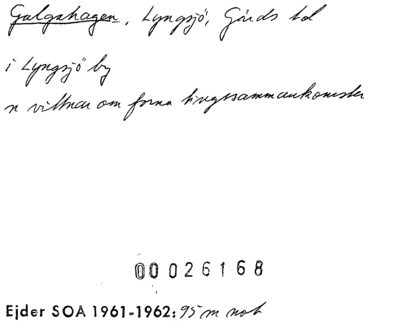 Galgahagen, Lyngsjö, Gärds hd
i Lyngsjö by
n vittnar om forna tingssammankomster
00026168
Ejder SOA 1961-1962: 95 m not